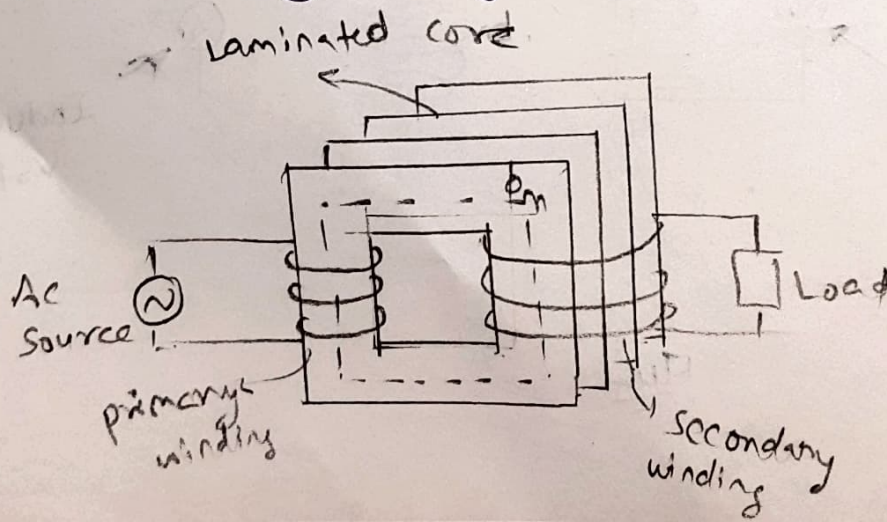 Laminated core
Φm
Ac
Source
Load
primary
winding
Secondary
winding